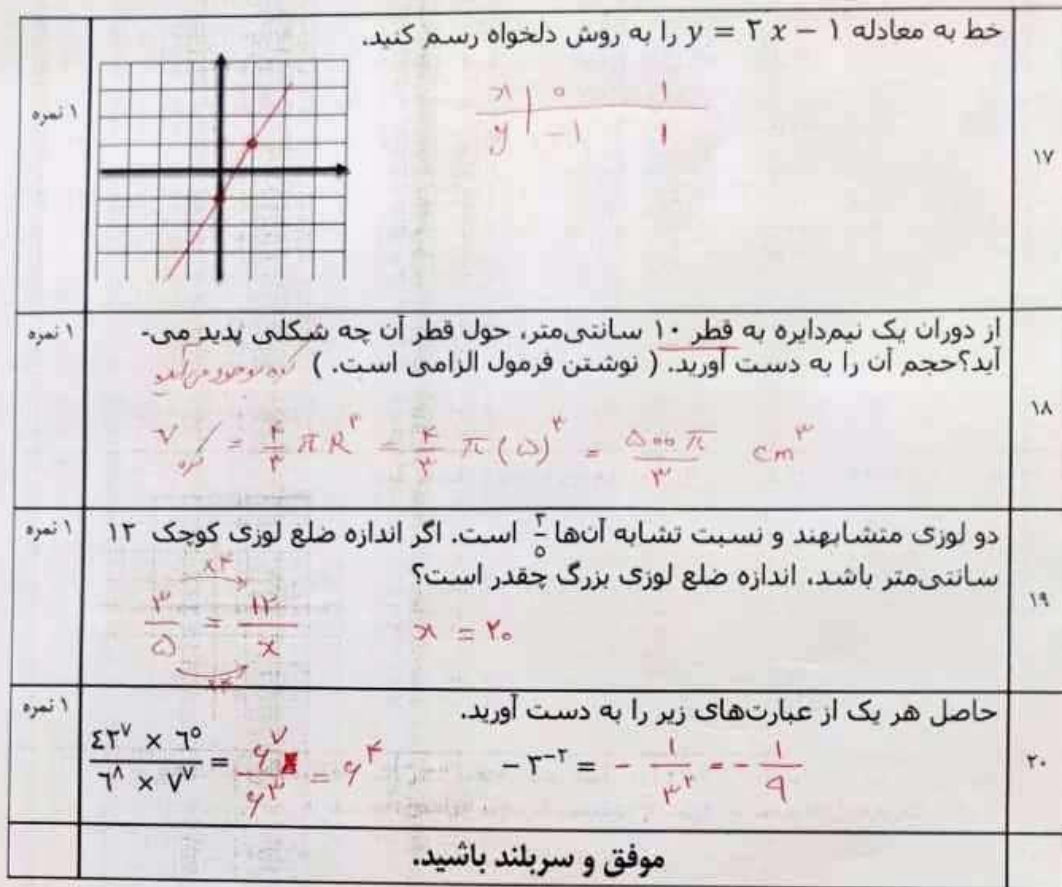 ۱۷
خط به معادله y = ۲x − ۱ را به روش دلخواه رسم کنید.
۱ نمره
x | ۰ 1
y | −1 1
۱۸
از دوران یک نیم‌دایره به قطر ۱۰ سانتی‌متر، حول قطر آن چه شکلی پدید می-
۱ نمره
آید؟حجم آن را به دست آورید. ( نوشتن فرمول الزامی است. )
V کره = ۴/۳ π R^۳ = ۴/۳ π (۵)^۳ = ۵۰۰π/۳ cm^۳
۱۹
دو لوزی متشابهند و نسبت تشابه آن‌ها ۳/۵ است. اگر اندازه ضلع لوزی کوچک ۱۲
۱ نمره
سانتی‌متر باشد، اندازه ضلع لوزی بزرگ چقدر است؟
×۴
۳/۵ = ۱۲/x x = ۲۰
×۴
۲۰
حاصل هر یک از عبارت‌های زیر را به دست آورید.
۱ نمره
−۳^−۲ = − 1/۳^۲ = − 1/۹
(٤۲^۷ × ٦^٥)/(٦^۸ × ۷^۷) = ۶^۷/۶^۳ = ۶^۴
موفق و سربلند باشید.